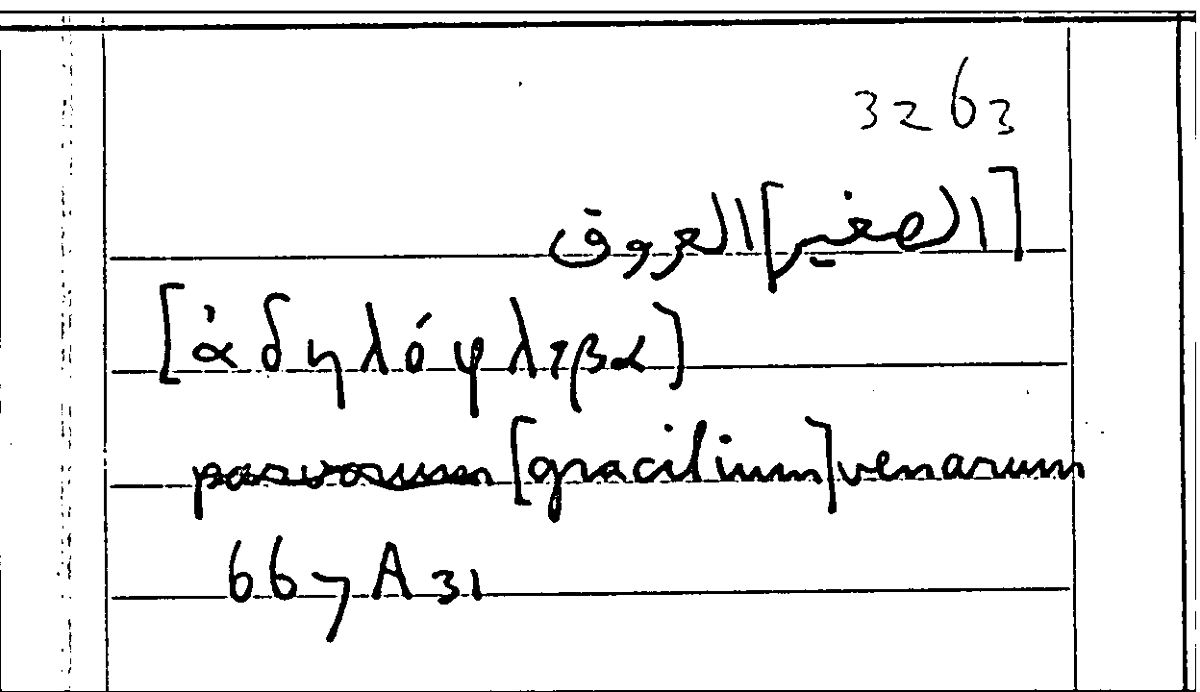 3263
[الصغير] العروق
[ἀδηλόφλεβα]
parvarum [gracilium] venarum
667A31